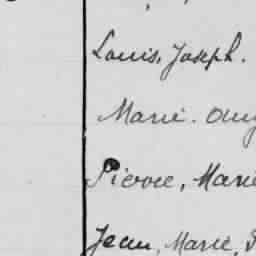 Louis, Joseph.
Marie. Aug
Pierre, Marie
Jean, Marie, J